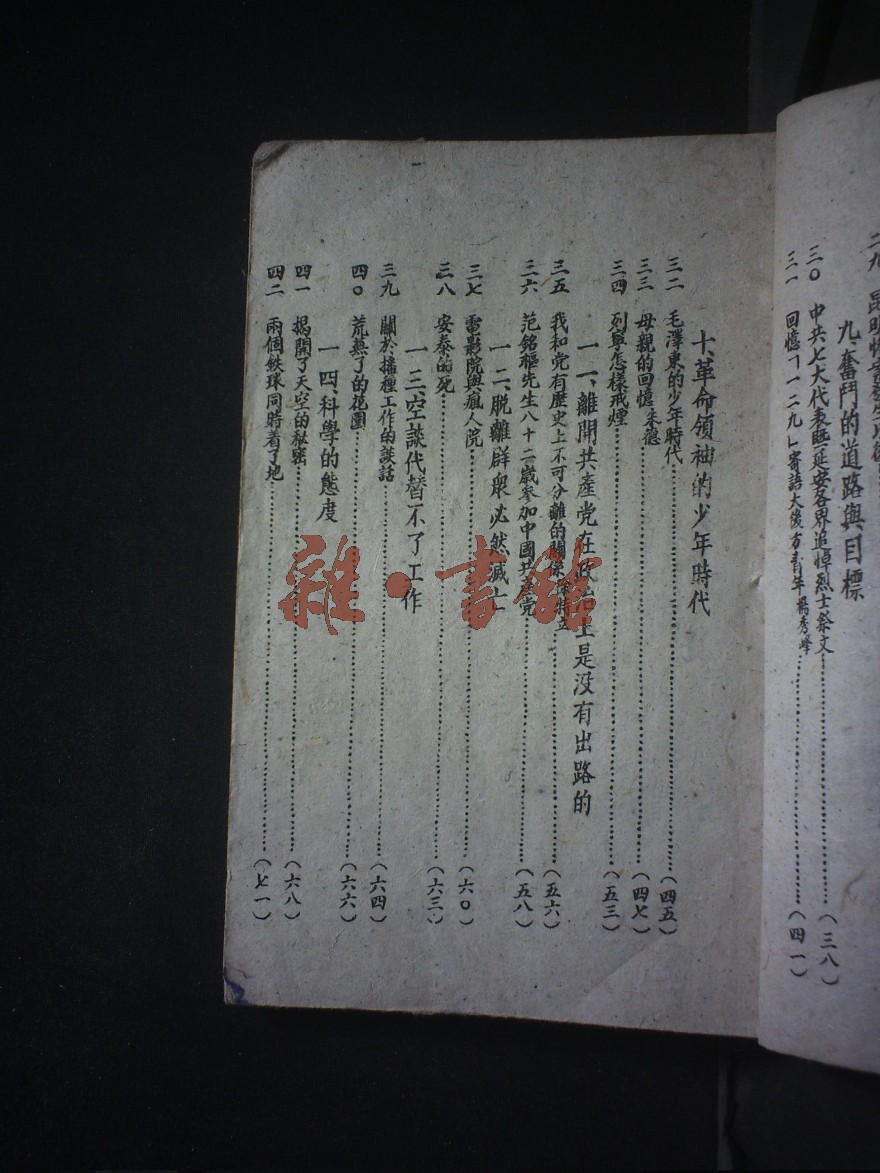 九、奮鬥的道路與目標
三〇 中共七大代表暨延安各界追悼烈士祭文……(三八)
三一 回憶「一二九」寄語大後方青年 楊秀峰……(四一)
十、革命領袖的少年時代
三二 毛澤東的少年時代……(四五)
三三 母親的回憶 朱德……(四七)
三四 列寧怎樣戒煙……(五三)
一一、離開共產党在政治上是没有出路的
三五 我和党有歷史上不可分離的關係 徐特立……(五六)
三六 范銘樞先生八十二歲參加中國共產党……(五八)
一二、脫離群眾必然滅亡
三七 電影院與瘋人院……(六〇)
三八 安泰的死……(六三)
一三、空談代替不了工作
三九 關於播種工作的談話……(六四)
四〇 荒蕪了的花園……(六六)
一四、科學的態度
四一 揭開了天空的秘密……(六八)
四二 兩個鉄球同時着了地……(七一)
雜·書舘